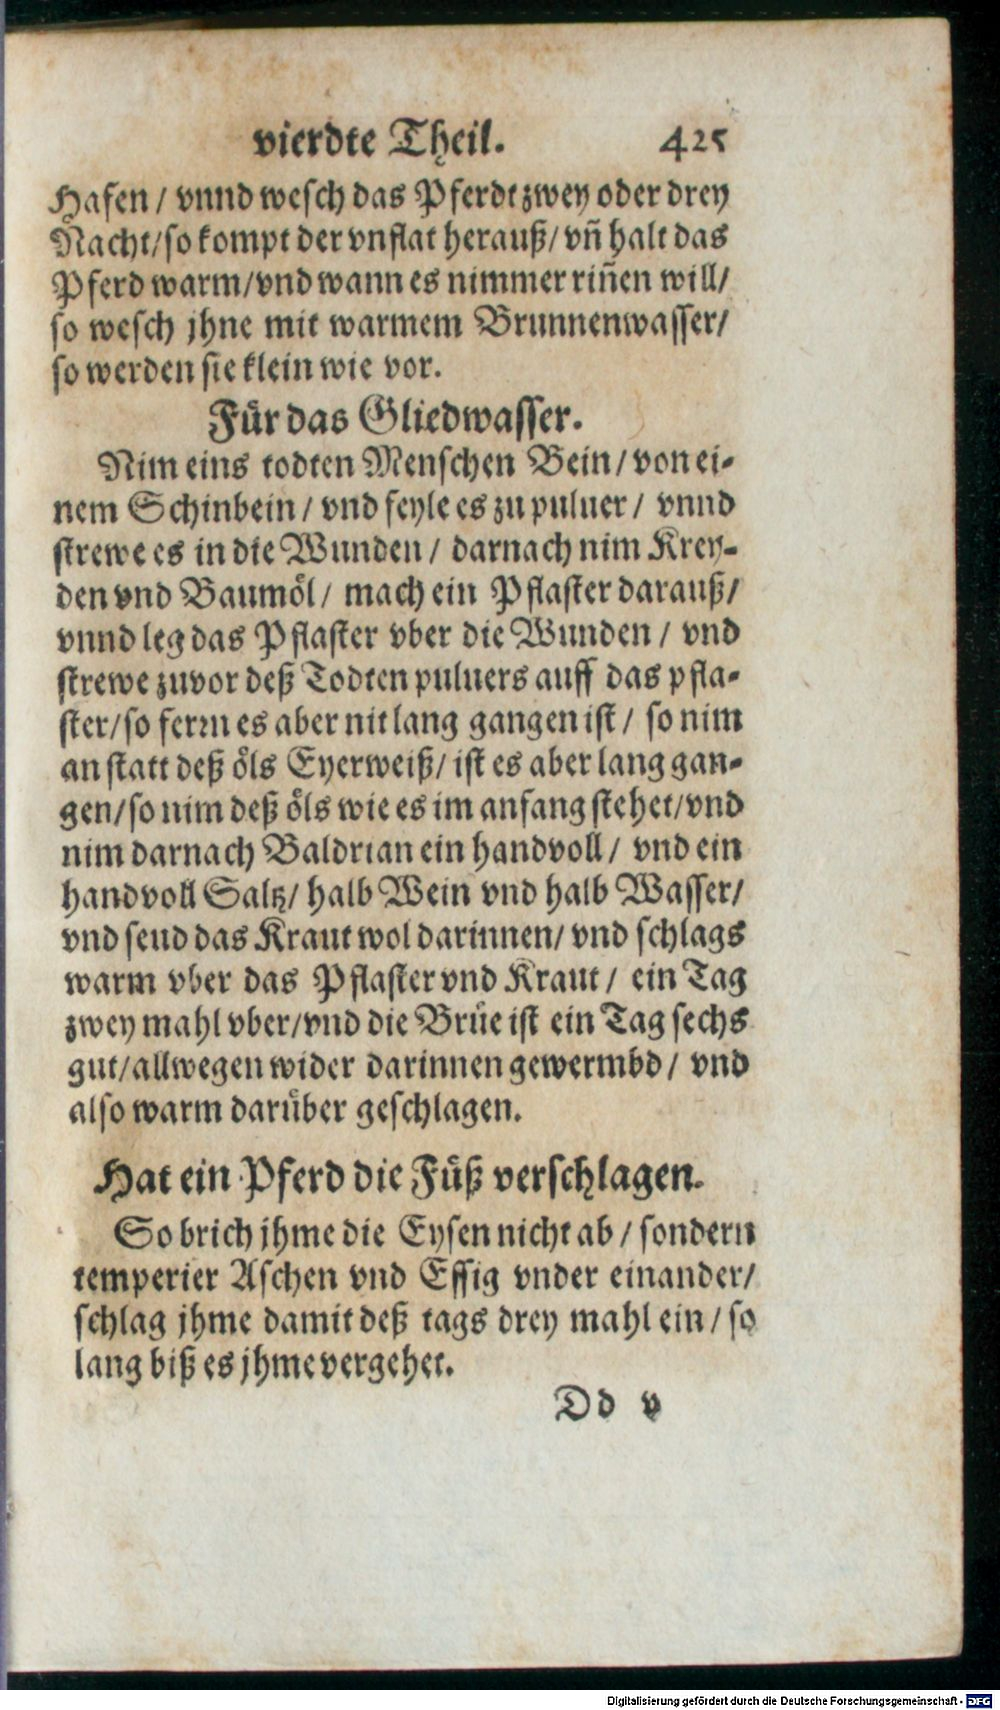 vierdte Theil. 425
Hafen / vnnd wesch das Pferdt zwey oder drey
Nacht/so kompt der vnflat herauß/ vñ halt das
Pferd warm/vnd wann es nimmer riñen will/
so wesch jhne mit warmem Brunnenwasser/
so werden sie klein wie vor.
Für das Gliedwasser.
Nim eins todten Menschen Bein/ von ei-
nem Schinbein / vnd feyle es zu puluer / vnnd
strewe es in die Wunden / darnach nim Krey-
den vnd Baumöl/ mach ein Pflaster darauß/
vnnd leg das Pflaster vber die Wunden / vnd
strewe zuvor deß Todten puluers auff das pfla-
ster/so ferrn es aber nit lang gangen ist / so nim
an statt deß öls Eyerweiß/ ist es aber lang gan-
gen/so nim deß öls wie es im anfang stehet/vnd
nim darnach Baldrian ein handvoll / vnd ein
handvoll Saltz/ halb Wein vnd halb Wasser/
vnd seud das Kraut wol darinnen/ vnd schlags
warm vber das Pflaster vnd Kraut / ein Tag
zwey mahl vber/vnd die Brüe ist ein Tag sechs
gut/allwegen wider darinnen gewermbd / vnd
also warm darüber geschlagen.
Hat ein Pferd die Füß verschlagen.
So brich jhme die Eysen nicht ab / sondern
temperier Aschen vnd Essig vnder einander/
schlag jhme damit deß tags drey mahl ein / so
lang biß es jhme vergehet.
Dd v
Digitalisierung gefördert durch die Deutsche Forschungsgemeinschaft - DFG